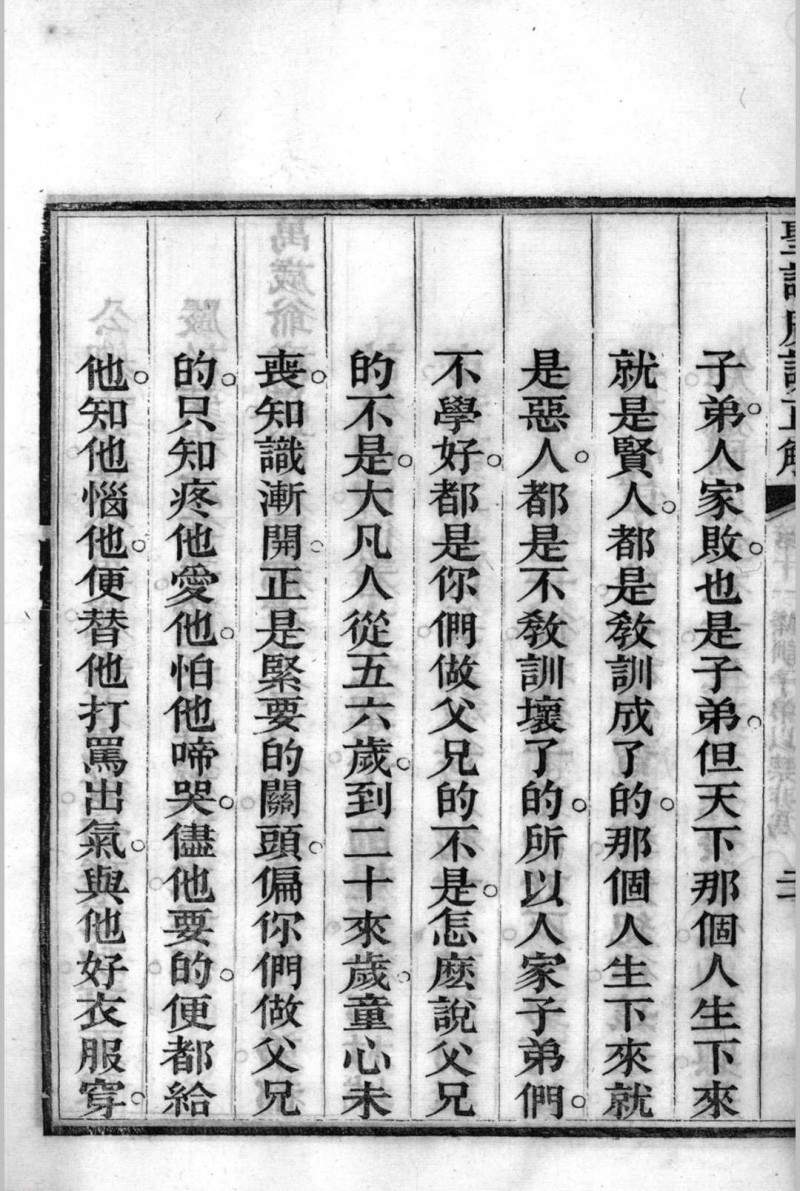 子弟。人家敗。也是子弟。但天下那個人生下來
就是賢人。都是教訓成了的。那個人生下來就
是惡人。都是不教訓壞了的。所以人家子弟們。
不學好。都是你們做父兄的不是。怎麽說父兄
的不是。大凡人從五六歲。到二十來歲。童心未
喪。知識漸開。正是緊要的關頭。偏你們做父兄
的。只知疼他愛他。怕他啼哭。儘他要的。便都給
他。知他惱他。便替他打罵出氣。與他好衣服穿。